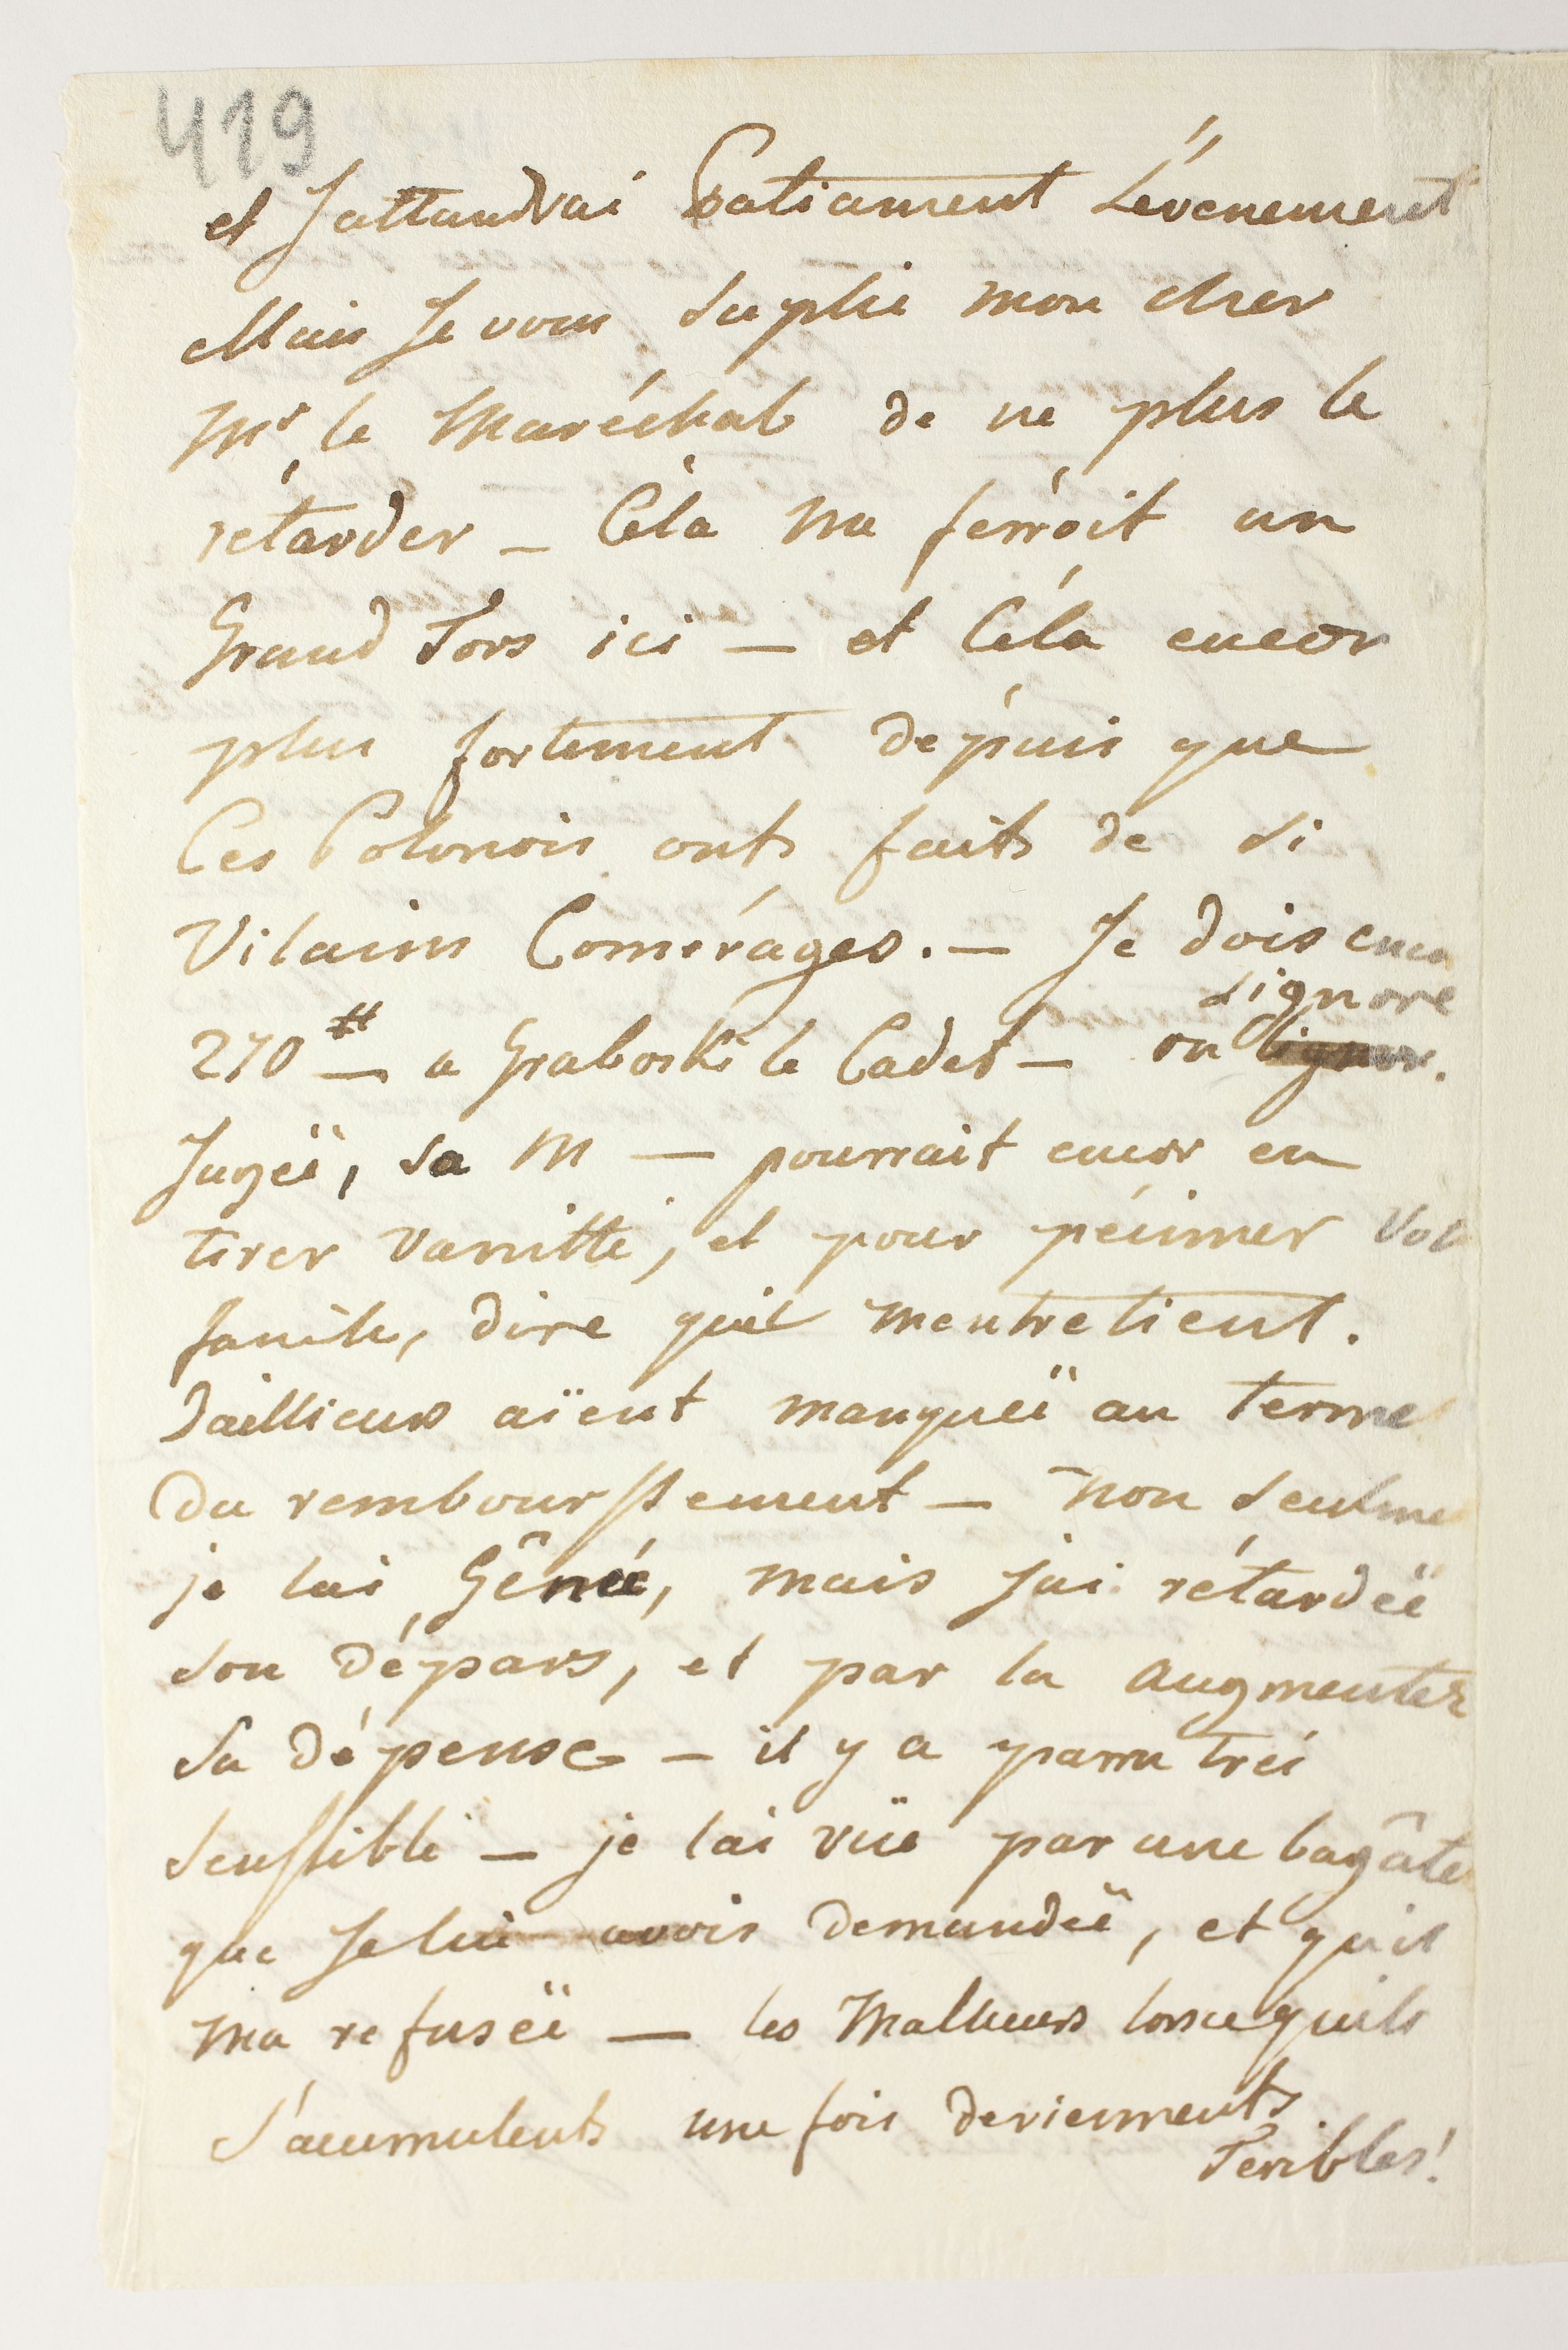 419
et Jattandrai Patiament Lévenement
Mais Je vous suplie mon cher
Mr le Maréchal de ne plus le
rétarder _ Céla me ferroit un
Grand Tors ici _ et Céla encor
plus fortement dépuis que
Ces Polonois onts faits de si
Vilains Comérages. _ Je dois enco
signore
270 # _ a Graboski le Cadet _ ou
Jugéï, sa M _ pourrait encor en
tirer vanitté, et pour
dire quil mentretient.
Daillieurs aïent manquéï au terme
Du rembourssement _ non seulme
je lai Gênéé, mais jai rétardéë
son départs, et par la augmenter
sa dépense _ il y a parru trés
senssible _ je lai vüe par une bagâte
que Je lui avois demandéë, et quil
ma refuséï _ les Malheurs lorsequils
s'acumulents une fois deviennents
Teribles!